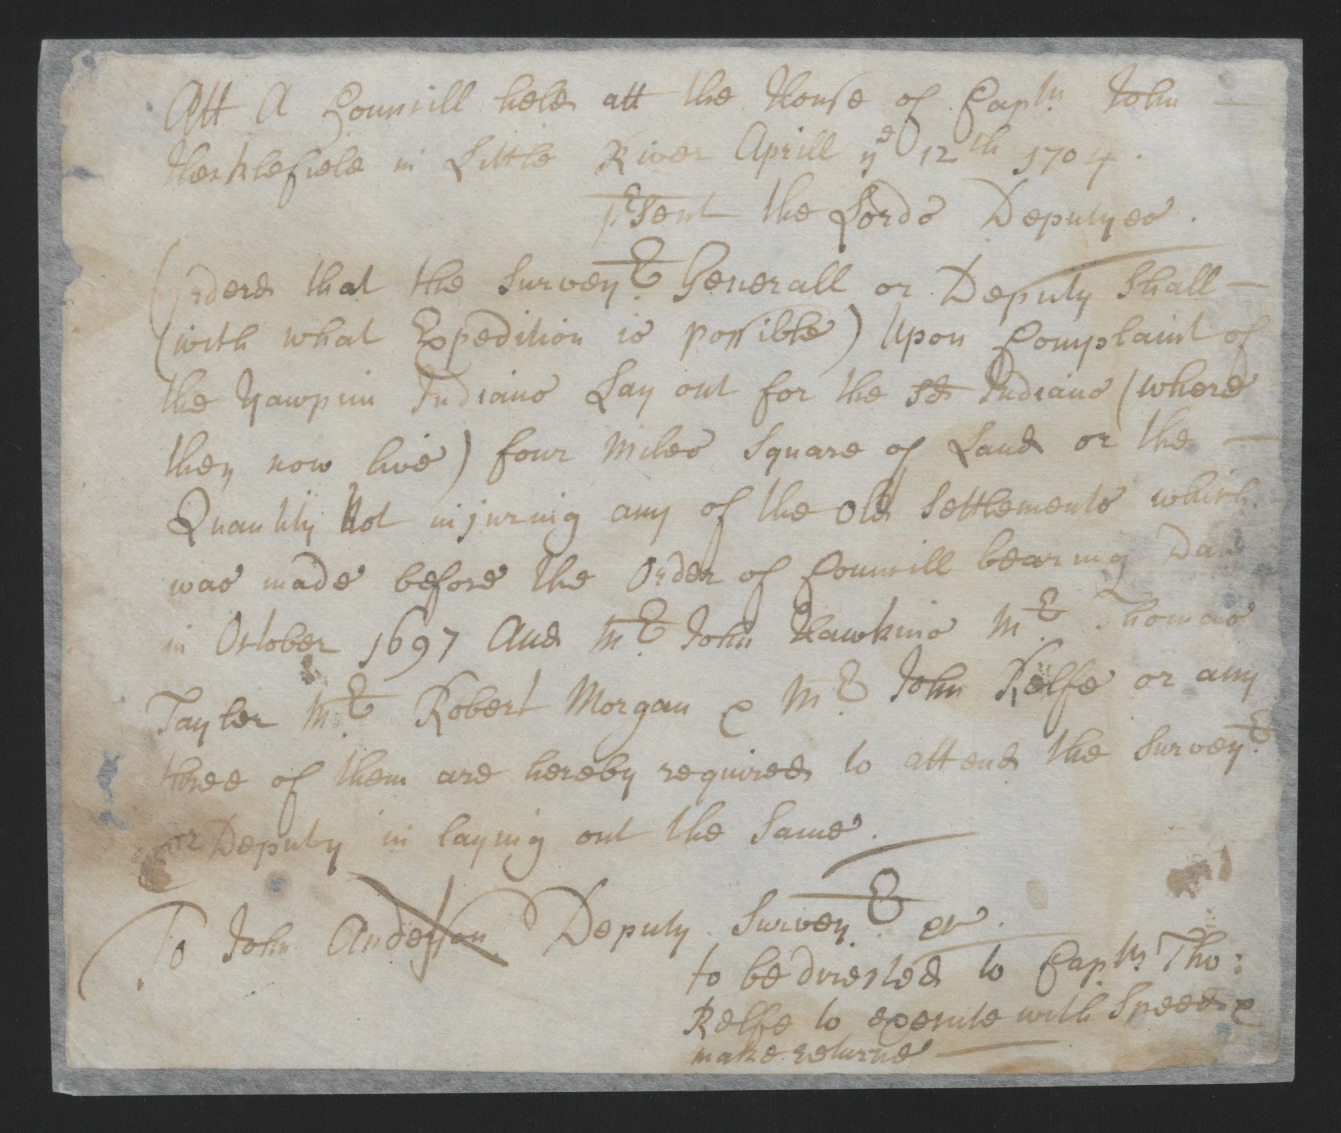 Att A Councill held att the House of Capt<sup>n</sup> John
Hecklefield in Little River Aprill y<sup>e</sup> 12<sup>th</sup> 1704.
P<sup>r</sup>sent the Lords Deputyes.
Ordered that the Survey<sup>r</sup> Generall or Deputy Shall
(with what Expedition is possible) Upon Complaint of
the Yawpim Indians Lay out for the s<sup>d</sup> Indians (where
they now live) four Miles Square of Land or the
Quantity Not injuring any of the Old Settlements which
was made before the Order of Councill bearing Date
in October 1697 And M<sup>r</sup> John Hawkins M<sup>r</sup> Thomas
Tayler M<sup>r</sup> Robert Morgan & M<sup>r</sup> John Relfe or any
three of them are hereby required to attend the Survey<sup>r</sup>
or Deputy in laying out the Same.
To John Anderson Deputy Survey<sup>r</sup> &c.
to be directed to Capt<sup>n</sup> Tho:
Relfe to execute with Speed &
make returne